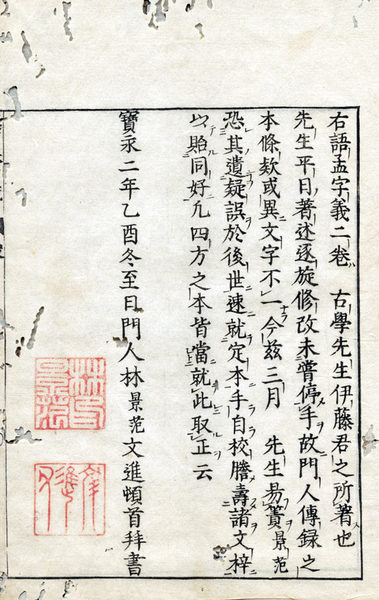 右語孟字義二卷 古學先生伊藤君之所著也
先生平日著述逐旋修改未嘗停手故門人傳錄之
本條欵或異文字不一今茲三月 先生易簀景范
恐其遺疑誤於後世速就定本手自校謄壽諸文梓
以貽同好凢四方之本皆當就此取正云
寶永二年乙酉冬至日門人林景范文進頓首拜書